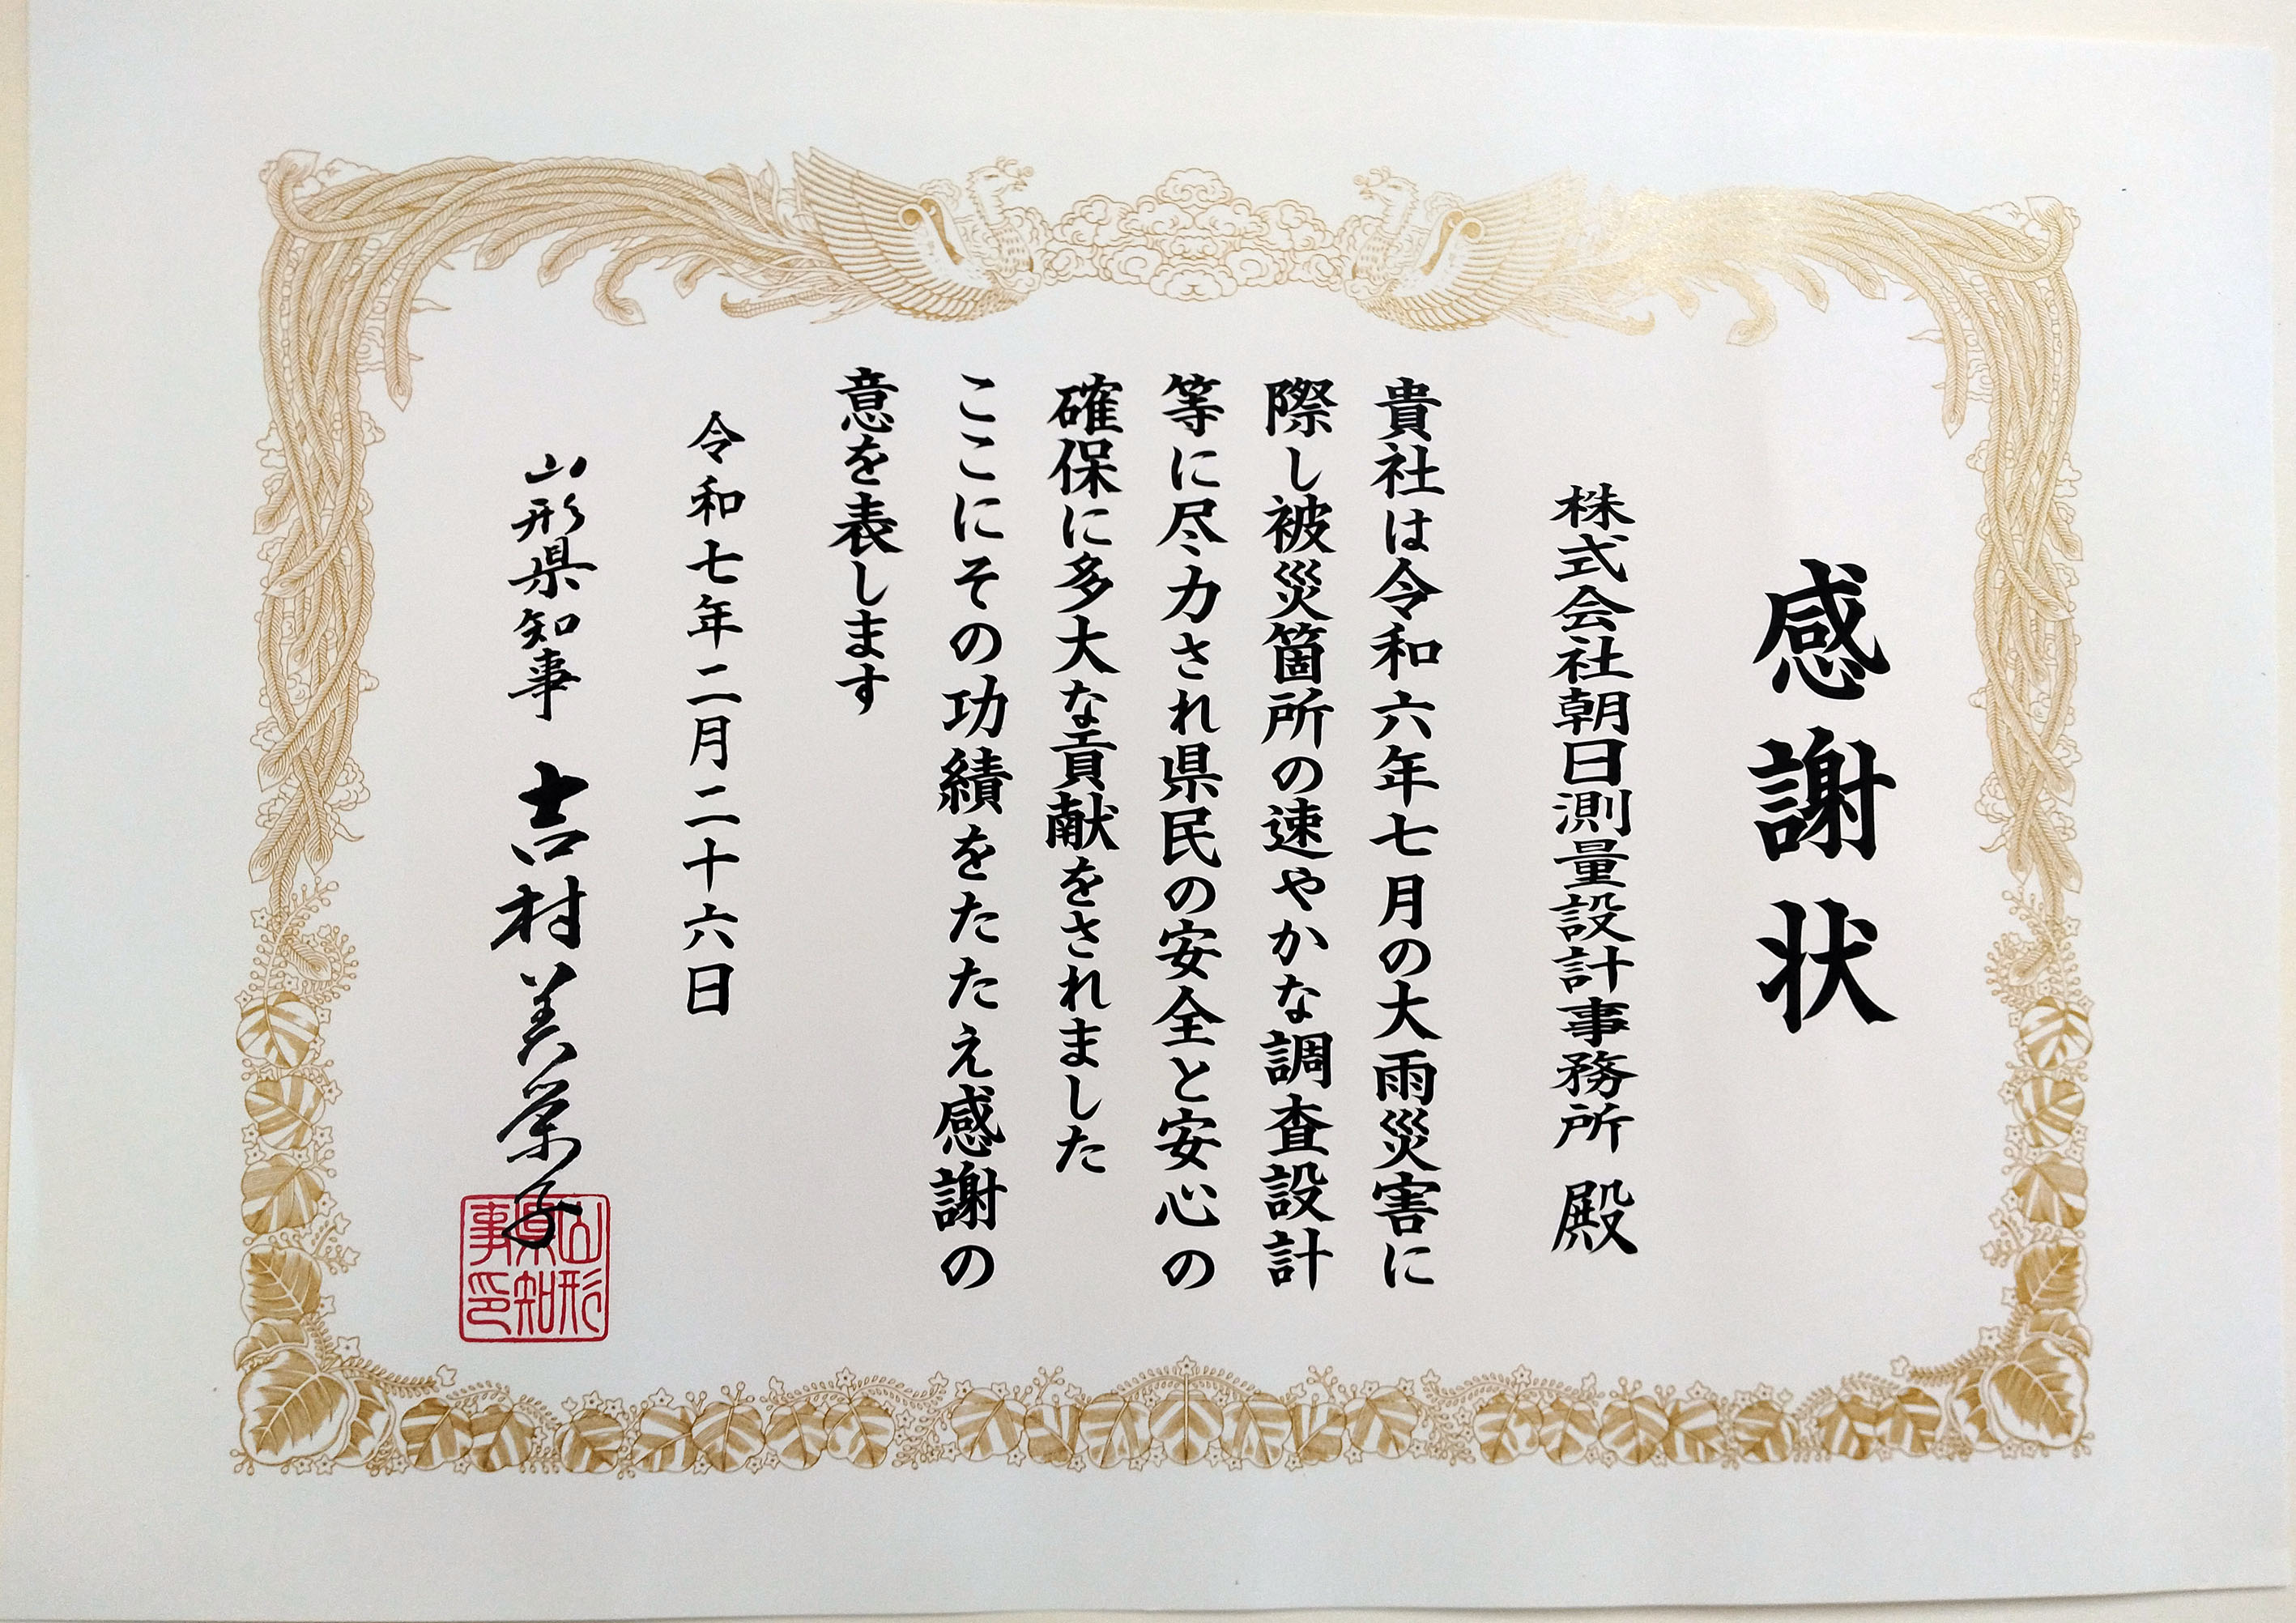 感謝状
株式会社朝日測量設計事務所 殿
貴社は令和六年七月の大雨災害に
際し被災箇所の速やかな調査設計
等に尽力され県民の安全と安心の
確保に多大な貢献をされました
ここにその功績をたたえ感謝の
意を表します
令和七年二月二十六日
山形県知事 吉村美栄子
山形
県知
事印